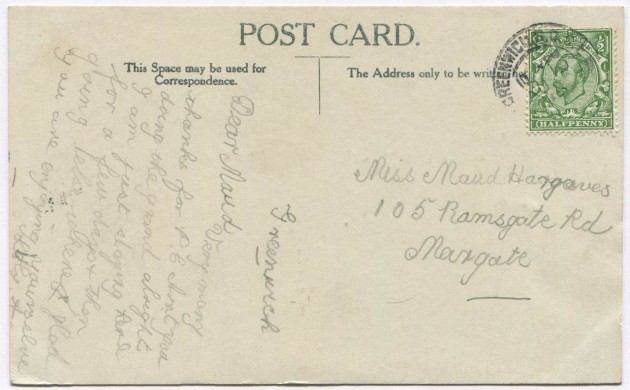 POST CARD.
This Space may be used for
Correspondence.
The Address only to be written here
GREENWICH S.E.
HALFPENNY
Greenwich
Dear Maud
Very many
thanks for P C Arnt you
doing the grand alright
I am just staying here
for a few days & then
going else where glad
you are enjoying yourselve
Miss Maud Hargaves
105 Ramsgate Rd
Margate